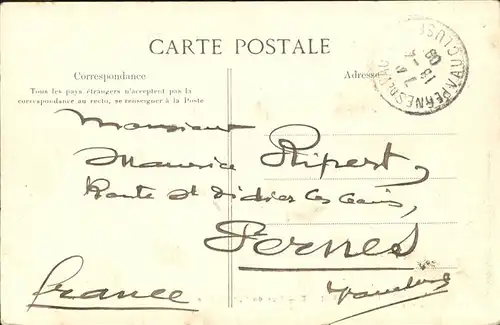 CARTE POSTALE
Correspondance
Tous les pays étrangers n'acceptent pas la
correspondance au recto, se renseigner à la Poste
Adresse
PERNES VAUCLUSE
7 4
13 - 4
09
Monsieur
Maurice Ripert,
Route St Didier les Bains,
Pernes
France
Vaucluse